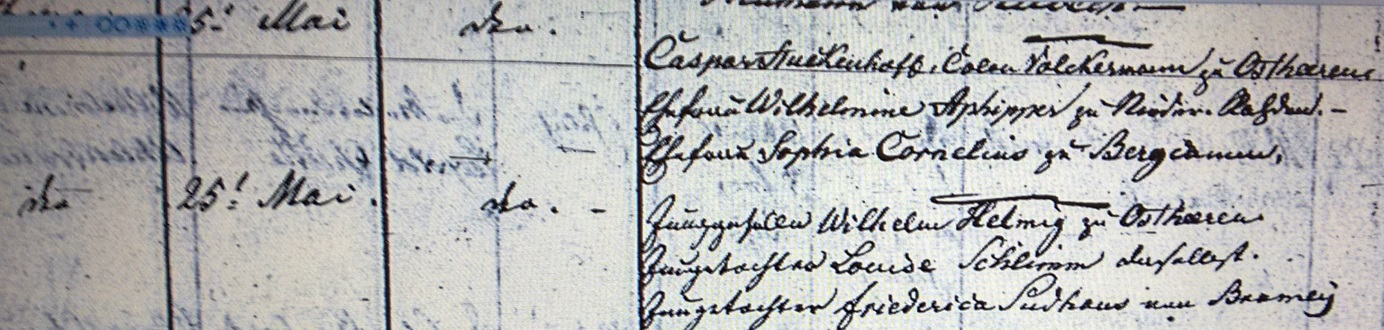 25t Mai
dto.
Caspar Stuckenhoff, Colon Volckermann zu Ostheeren
Ehefrau Wilhelmine zu Nieder
Ehefrau Sophia Cornelius zu Bergcamen,
dto
25t Mai.
dto. -
Junggesellen Wilhelm Helmig zu Ostheeren
Jungetochter Louise Schlimm daselbst.
Jungetochter Friederica Sudhaus von Bramey